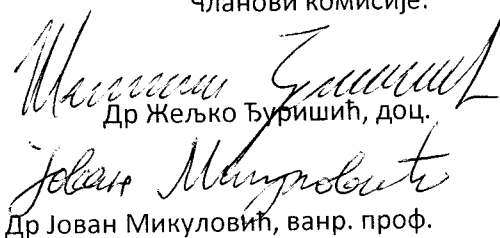 Чланови комисије:
Др Жељко Ђуришић, доц.
Јован Микуловић
Др Јован Микуловић, ванр. проф.